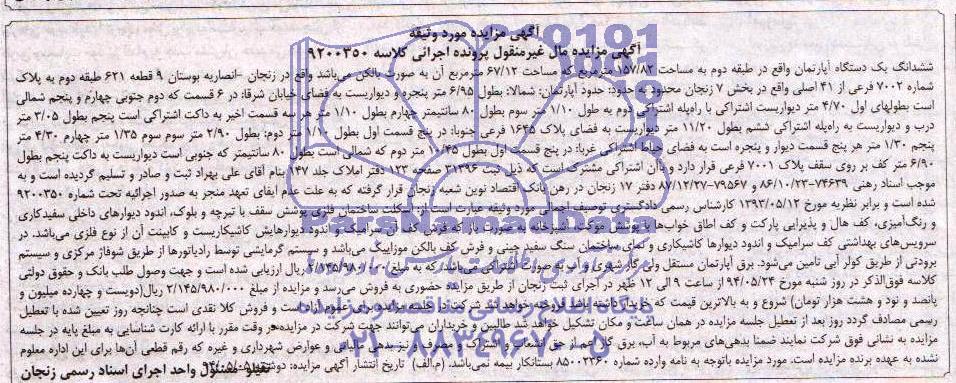 آگهی مزایده مورد وثیقه
آگهی مزایده مال غیرمنقول پرونده اجرائی کلاسه ۹۲۰۰۳۵۰
ششدانگ یک دستگاه آپارتمان واقع در طبقه دوم به مساحت ۱۵۷/۸۲ مترمربع که مساحت ۶۷/۱۲ مترمربع آن به صورت بالکن می‌باشد واقع در زنجان –انصاریه بوستان ۹ قطعه ۶۲۱ طبقه دوم به پلاک
شماره ۷۰۰۲ فرعی از ۴۱ اصلی واقع در بخش ۷ زنجان محدود به حدود: حدود آپارتمان: شمالا: بطول ۶/۹۵ متر پنجره و دیواریست به فضای خیابان شرقا: در ۶ قسمت که دوم جنوبی چهارم و پنجم شمالی
است بطولهای اول ۴/۷۰ متر دیواریست اشتراکی با راه‌پله اشتراکی دوم به طول ۱/۱۰ متر سوم بطول ۸۰ سانتیمتر چهارم بطول ۱/۱۰ متر هر سه قسمت اخیر به داکت اشتراکی است پنجم بطول ۳/۰۵ متر
درب و دیواریست به راه‌پله اشتراکی ششم بطول ۱۱/۲۰ متر دیواریست به فضای پلاک ۱۶۴۵ فرعی جنوبا: در پنج قسمت اول بطول ۱/۱۰ متر دوم: بطول ۲/۹۰ متر سوم سوم ۱/۳۵ متر چهارم ۴/۳۰ متر
پنجم ۱/۳۰ متر هر پنج قسمت دیوار و پنجره است به فضای حیاط اشتراکی غربا: در پنج قسمت اول بطول ۱۰/۴۵ متر دوم که شمالی است بطول ۸۰ سانتیمتر که جنوبی است دیواریست به داکت پنجم بطول
۶/۹۰ متر کف بر روی سقف پلاک ۷۰۰۱ فرعی قرار دارد و آن اشتراکی مشترک است که ذیل ثبت ۳۱۲۹۶ صفحه ۱۲۳ دفتر املاک جلد ۱۴۷ بنام آقای علی بهراد ثبت و صادر و تسلیم گردیده است و به
موجب اسناد رهنی ۷۴۶۳۹-۸۶/۱۰/۲۳ و ۷۹۵۶۷-۸۷/۱۲/۲۷ دفتر ۱۷ زنجان در رهن بانک اقتصاد نوین شعبه زنجان قرار گرفته که به علت عدم ایفای تعهد منجر به صدور اجرائیه تحت شماره ۹۲۰۰۳۵۰
شده است و برابر نظریه مورخ ۱۳۹۳/۰۵/۱۲ کارشناس رسمی دادگستری توصیف اجمالی مورد وثیقه عبارت است از: اسکلت ساختمان فلزی پوشش سقف با تیرچه و بلوک، اندود دیوارهای داخلی سفیدکاری
و رنگ‌آمیزی، کف هال و پذیرایی پارکت و کف اطاق خواب‌ها با پوشش موکت، آشپزخانه به صورت باز که فرش کف آن سرامیک و اندود دیوارهایش کاشیکاریست و کابینت آن از نوع فلزی می‌باشد. در
سرویس‌های بهداشتی کف سرامیک و اندود دیوارها کاشیکاری و نمای ساختمان سنگ سفید چینی و فرش کف بالکن موزاییک می‌باشد و سیستم گرمایشی توسط رادیاتورها از طریق شوفاژ مرکزی و سیستم
برودتی از طریق کولر آبی تامین می‌شود. برق آپارتمان مستقل ولی گاز شهری و آب به صورت اشتراکی می‌باشد که به مبلغ ریال ارزیابی شده است و جهت وصول طلب بانک و حقوق دولتی
کلاسه فوق‌الذکر در روز شنبه مورخ ۹۴/۰۵/۲۴ از ساعت ۹ الی ۱۲ ظهر در اجرای ثبت زنجان از طریق مزایده حضوری به فروش می‌رسد و مزایده از مبلغ ۲/۱۴۵/۹۸۰/۰۰۰ ریال(دویست و چهارده میلیون و
پانصد و نود و هشت هزار تومان) شروع و به بالاترین قیمت که خریدار داشته باشد فروخته خواهد شد شرکت در جلسه مزایده برای عموم آزاد است و فروش کلا نقدی است چنانچه روز تعیین شده با تعطیل
رسمی مصادف گردد روز بعد از تعطیل جلسه مزایده در همان ساعت و مکان تشکیل خواهد شد طالبین و خریداران می‌توانند جهت شرکت در مزایده در وقت مقرر با ارائه کارت شناسایی به مبلغ پایه در جلسه
مزایده به نشانی فوق شرکت نمایند ضمنا بدهی‌های مربوط به آب، برق گاز اعم از حق انشعاب و اشتراک و مصرف و نیز بدهی مالیاتی و عوارض شهرداری و غیره که رقم قطعی آن‌ها برای این اداره معلوم
نشده به عهده برنده مزایده است. مورد مزایده باتوجه به نامه وارده شماره ۸۵۰۰۲۳۶۰ بستانکار بیمه نمی‌باشد. (م.الف) تاریخ انتشار آگهی مزایده: دوشنبه
مسئول واحد اجرای اسناد رسمی زنجان
ParsNamadData
پایگاه اطلاع رسانی مناقصه و مزایده
۰۲۱-۸۸۳۴۹۶۷۰-۵